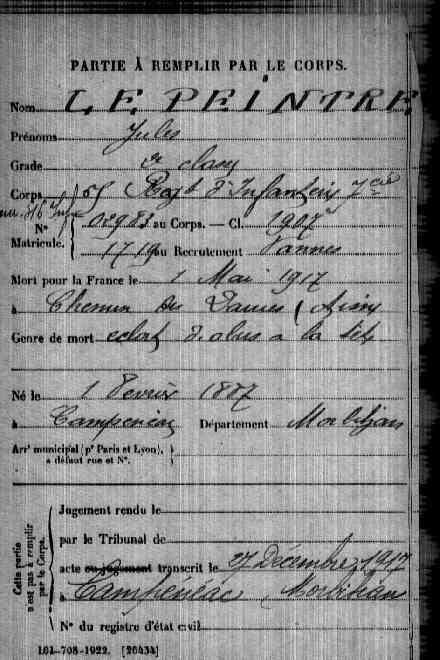 PARTIE À REMPLIR PAR LE CORPS.
Nom LE PEINTRE
Prénoms Jules
Grade 2e classe
Corps Regt d'Infanterie 7e Cie
N° 02983 au Corps. — Cl. 1907
Matricule. 1719 au Recrutement Vannes
Mort pour la France le 1 Mai 1917
à Chemin des Dames (Aisne
Genre de mort eclat d'obus a la tête
Né le 1 Fevrier 1887
à Campeneac Département Morbihan
Arrt municipal (pr Paris et Lyon),
à défaut rue et N°.
Cette partie n'est pas à remplir par le Corps.
Jugement rendu le
par le Tribunal de
acte ou jugement transcrit le 27 Décembre 1917
à Campénéac, Morbihan
N° du registre d'état civil
101-708-1922. [20434]